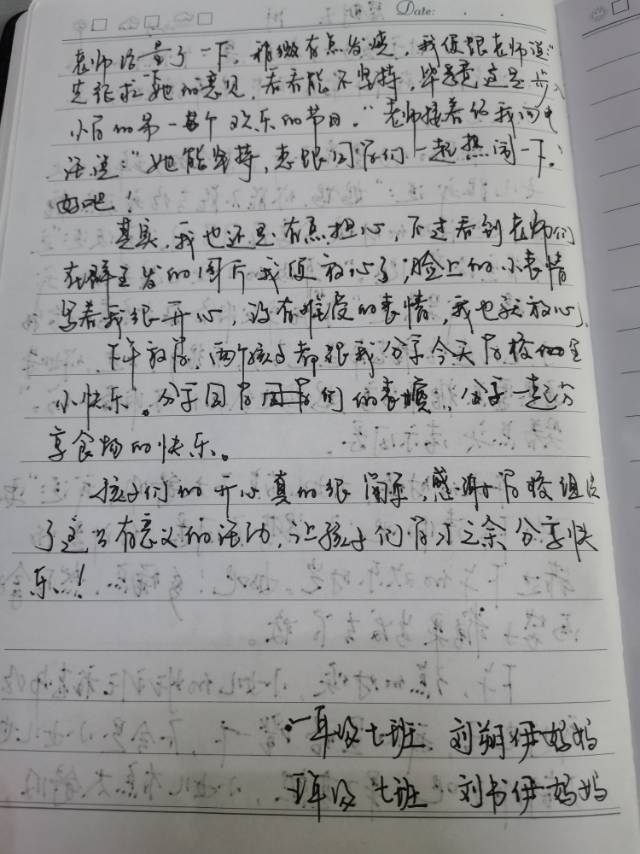 Date:
老师给量了一下，稍微有点发烧，我便跟老师说："
先征求她的意见，看看能不坚持，毕竟这是步入
小学的第一个欢乐的节日。"老师接着给我回电
话说："她能坚持，想跟同学们一起热闹一下。"
好吧！
其实，我也还是有点担心，不过看到老师们
在群里发的图片我便放心了，脸上的小表情
写着我很开心，没有难受的表情，我也就放心。
下午放学，两个孩子都跟我分享今天学校的
小快乐。分享同学们的表演，分享一起分
享食物的快乐。
孩子们的开心真的很简单，感谢学校组织
了这个有意义的活动，让孩子们学习之余分享快
乐！
一年级七班 刘朔伊妈妈
年级七班 刘书伊妈妈